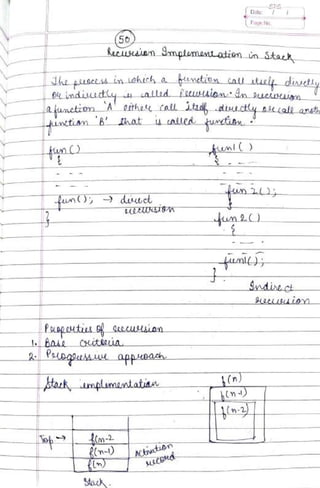 DTS
Date: / /
Page No.
50
Recursion Implementation in Stack
The process in which a function call itself directly
or indirectly is called recursion. In recursion
a function 'A' either call itself directly or call another
function 'B' that is called function.
fun() fun1()
{ {
fun(); → direct fun2();
recursion }
} fun2()
{
fun1();
}
Indirect
recursion
Properties of recursion
1. Base criteria
2. Progressive approach
Stack implementation
f(n)
f(n-1)
f(n-2)
Top → f(n-2
f(n-1)
f(n)
Activation
record
Stack.